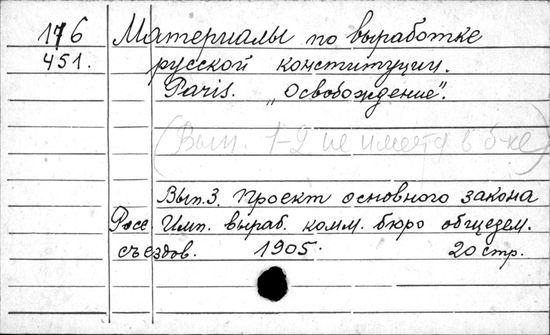 176
451.
Материалы по выработке
русской конституции.
Paris. „Освобождение".
(Вып. 1-2 не имеется в б-ке)
Вып.3. Проект основного закона
Росс. Имп. выраб. комм. бюро общезем.
съездов. 1905. 20 стр.